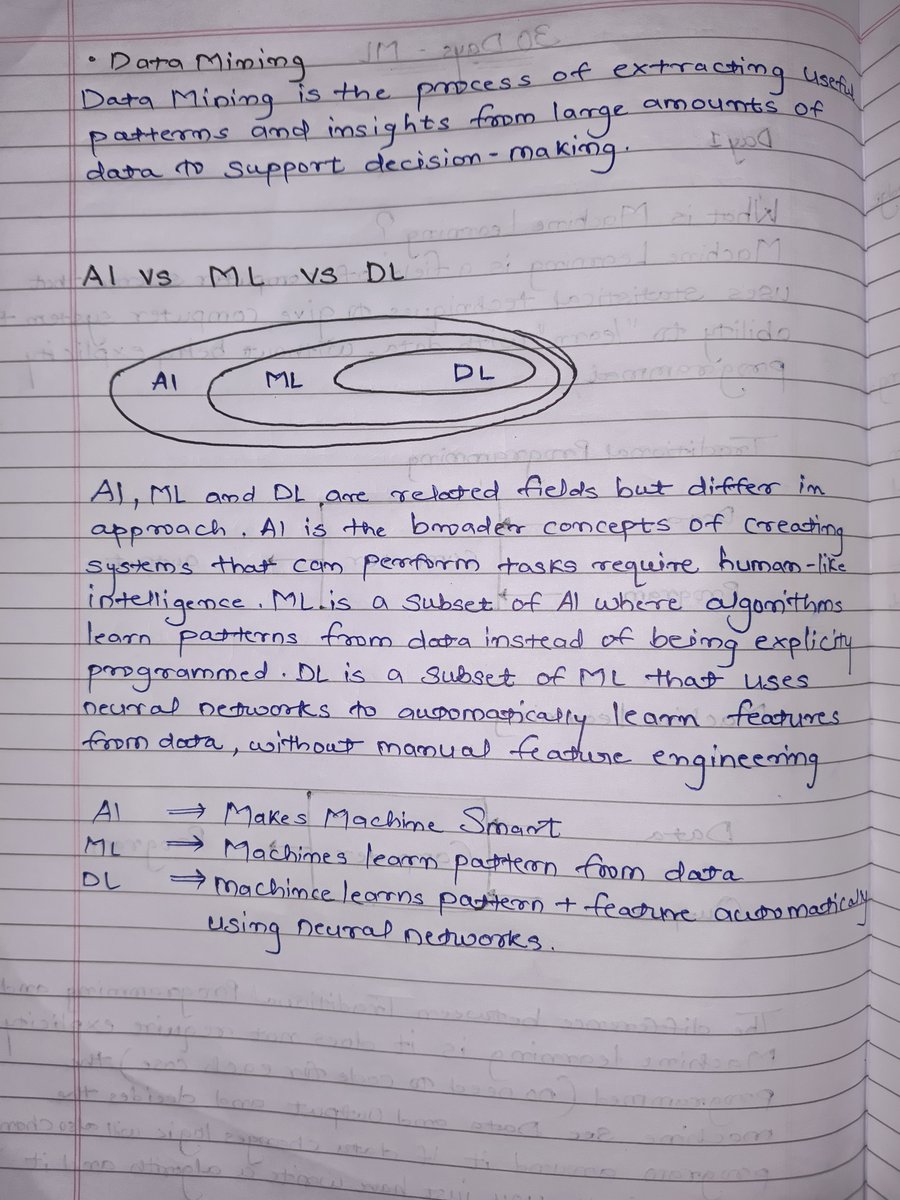 • Data Mining
Data Mining is the process of extracting useful
patterns and insights from large amounts of
data to support decision-making.
AI vs ML vs DL
AI ML DL
AI, ML and DL are related fields but differ in
approach. AI is the broader concepts of creating
systems that can perform tasks require human-like
intelligence. ML is a subset of AI where algorithms
learn patterns from data instead of being explicity
programmed. DL is a subset of ML that uses
neural networks to automatically learn features
from data, without manual feature engineering
AI ⇒ Makes Machine Smart
ML ⇒ Machines learn pattern from data
DL ⇒ machince learns pattern + feature automaticaly
using neural networks.